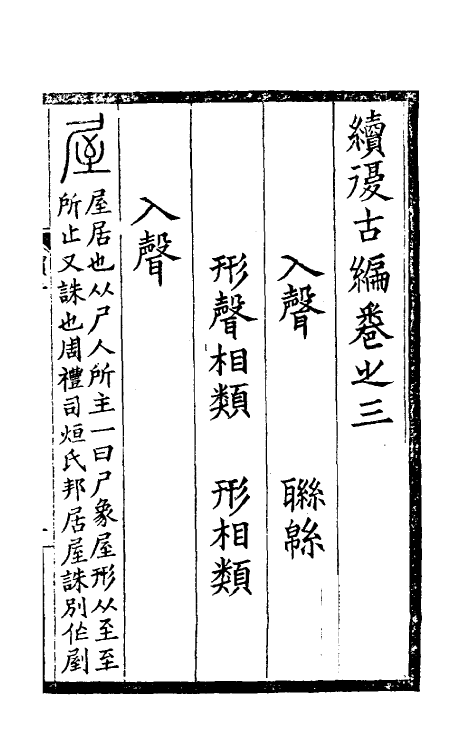 續復古編卷之三
入聲 聯緜
形聲相類 形相類
入聲
屋
屋居也从尸人所主一曰尸象屋形从至至
所止又誅也周禮司烜氏邦居屋誅別作剭